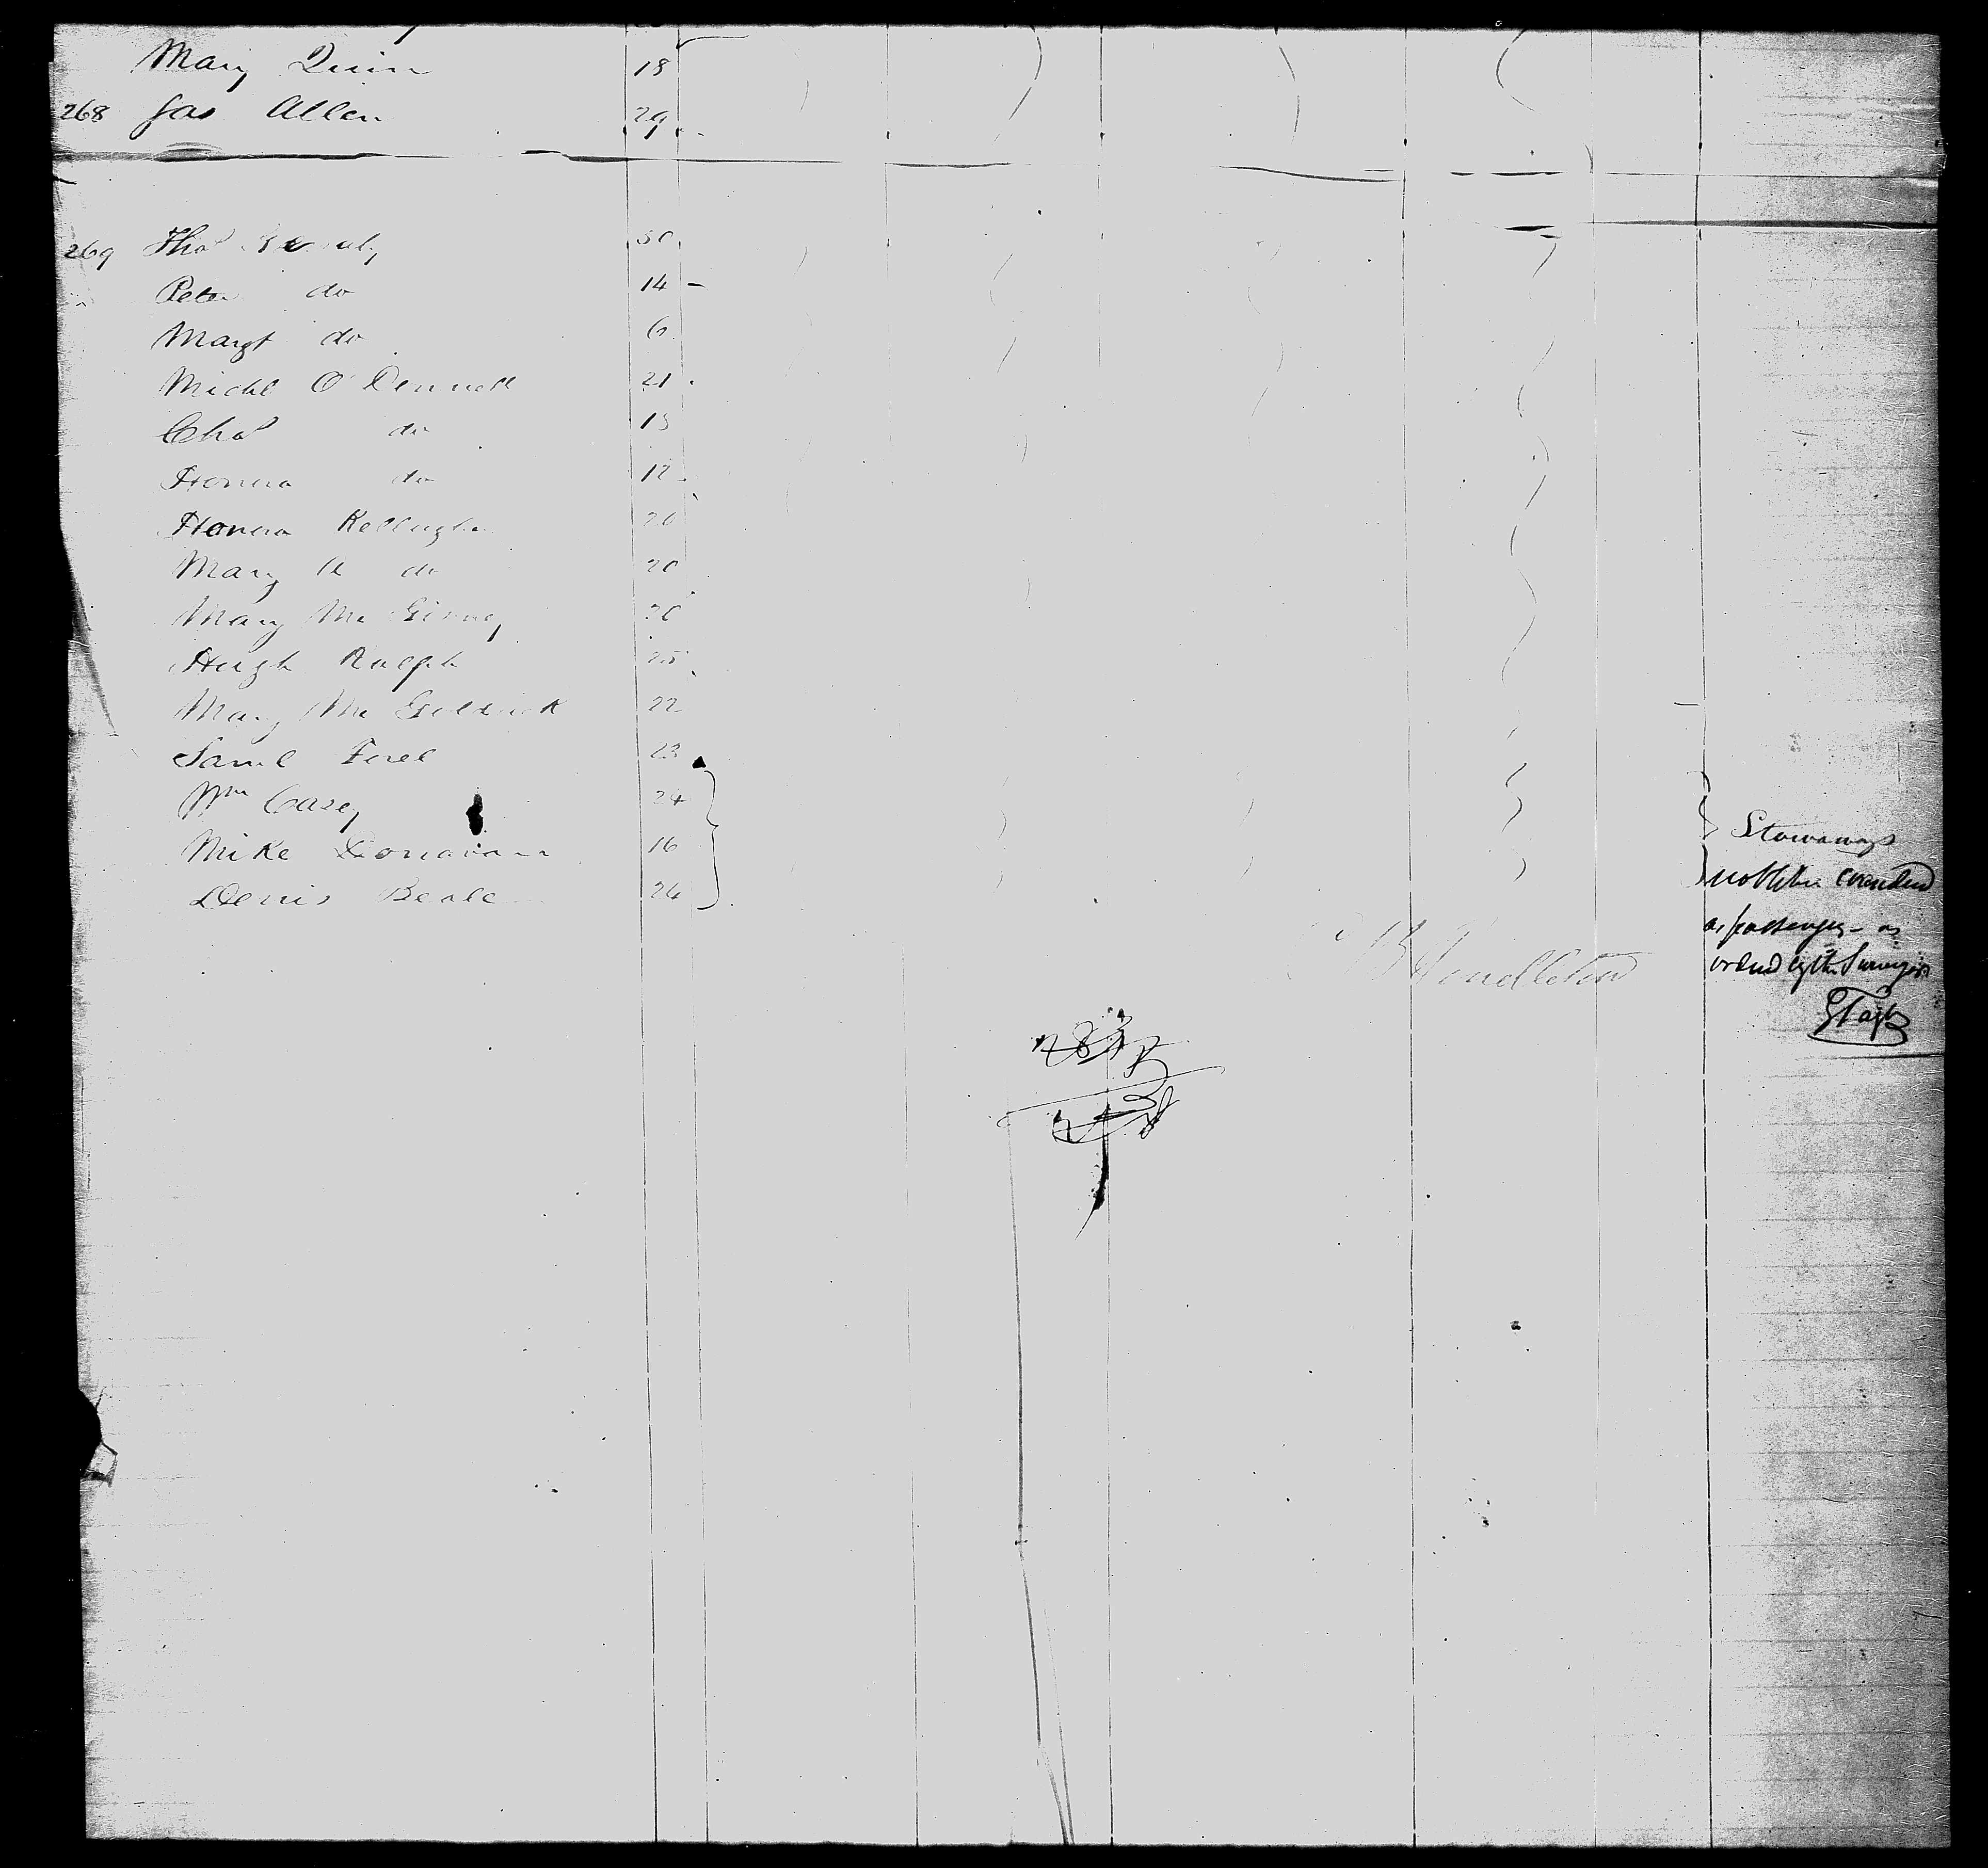 Mary Quinn 18
268 Jas Allen 29
269 Thos 50
Peter do 14
Margt do 6
Michl O'Donnell 21
Chas do 15
Honora do 12
Honora Kellaghan 20
Mary A do 20
Mary Mc 20
Hugh Ralph 25
Mary Mc Goldrick 22
Saml 23
Wm Casey 24
Mike Donovan 16
Denis 24
Stowaways
not to be counted
as passengers - as
ordered by the Surveyor
B Pendleton